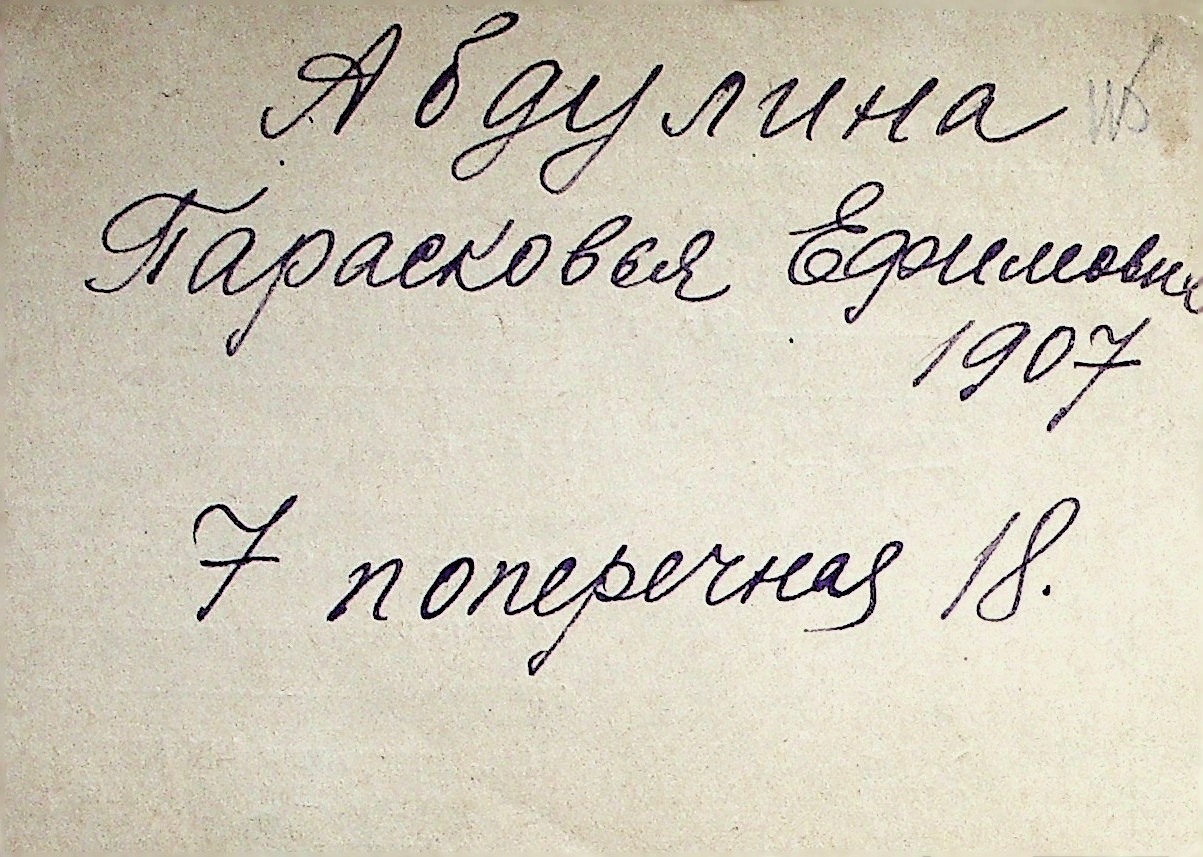 Абдулина
Парасковья Ефимовна
1907
7 поперечная 18.